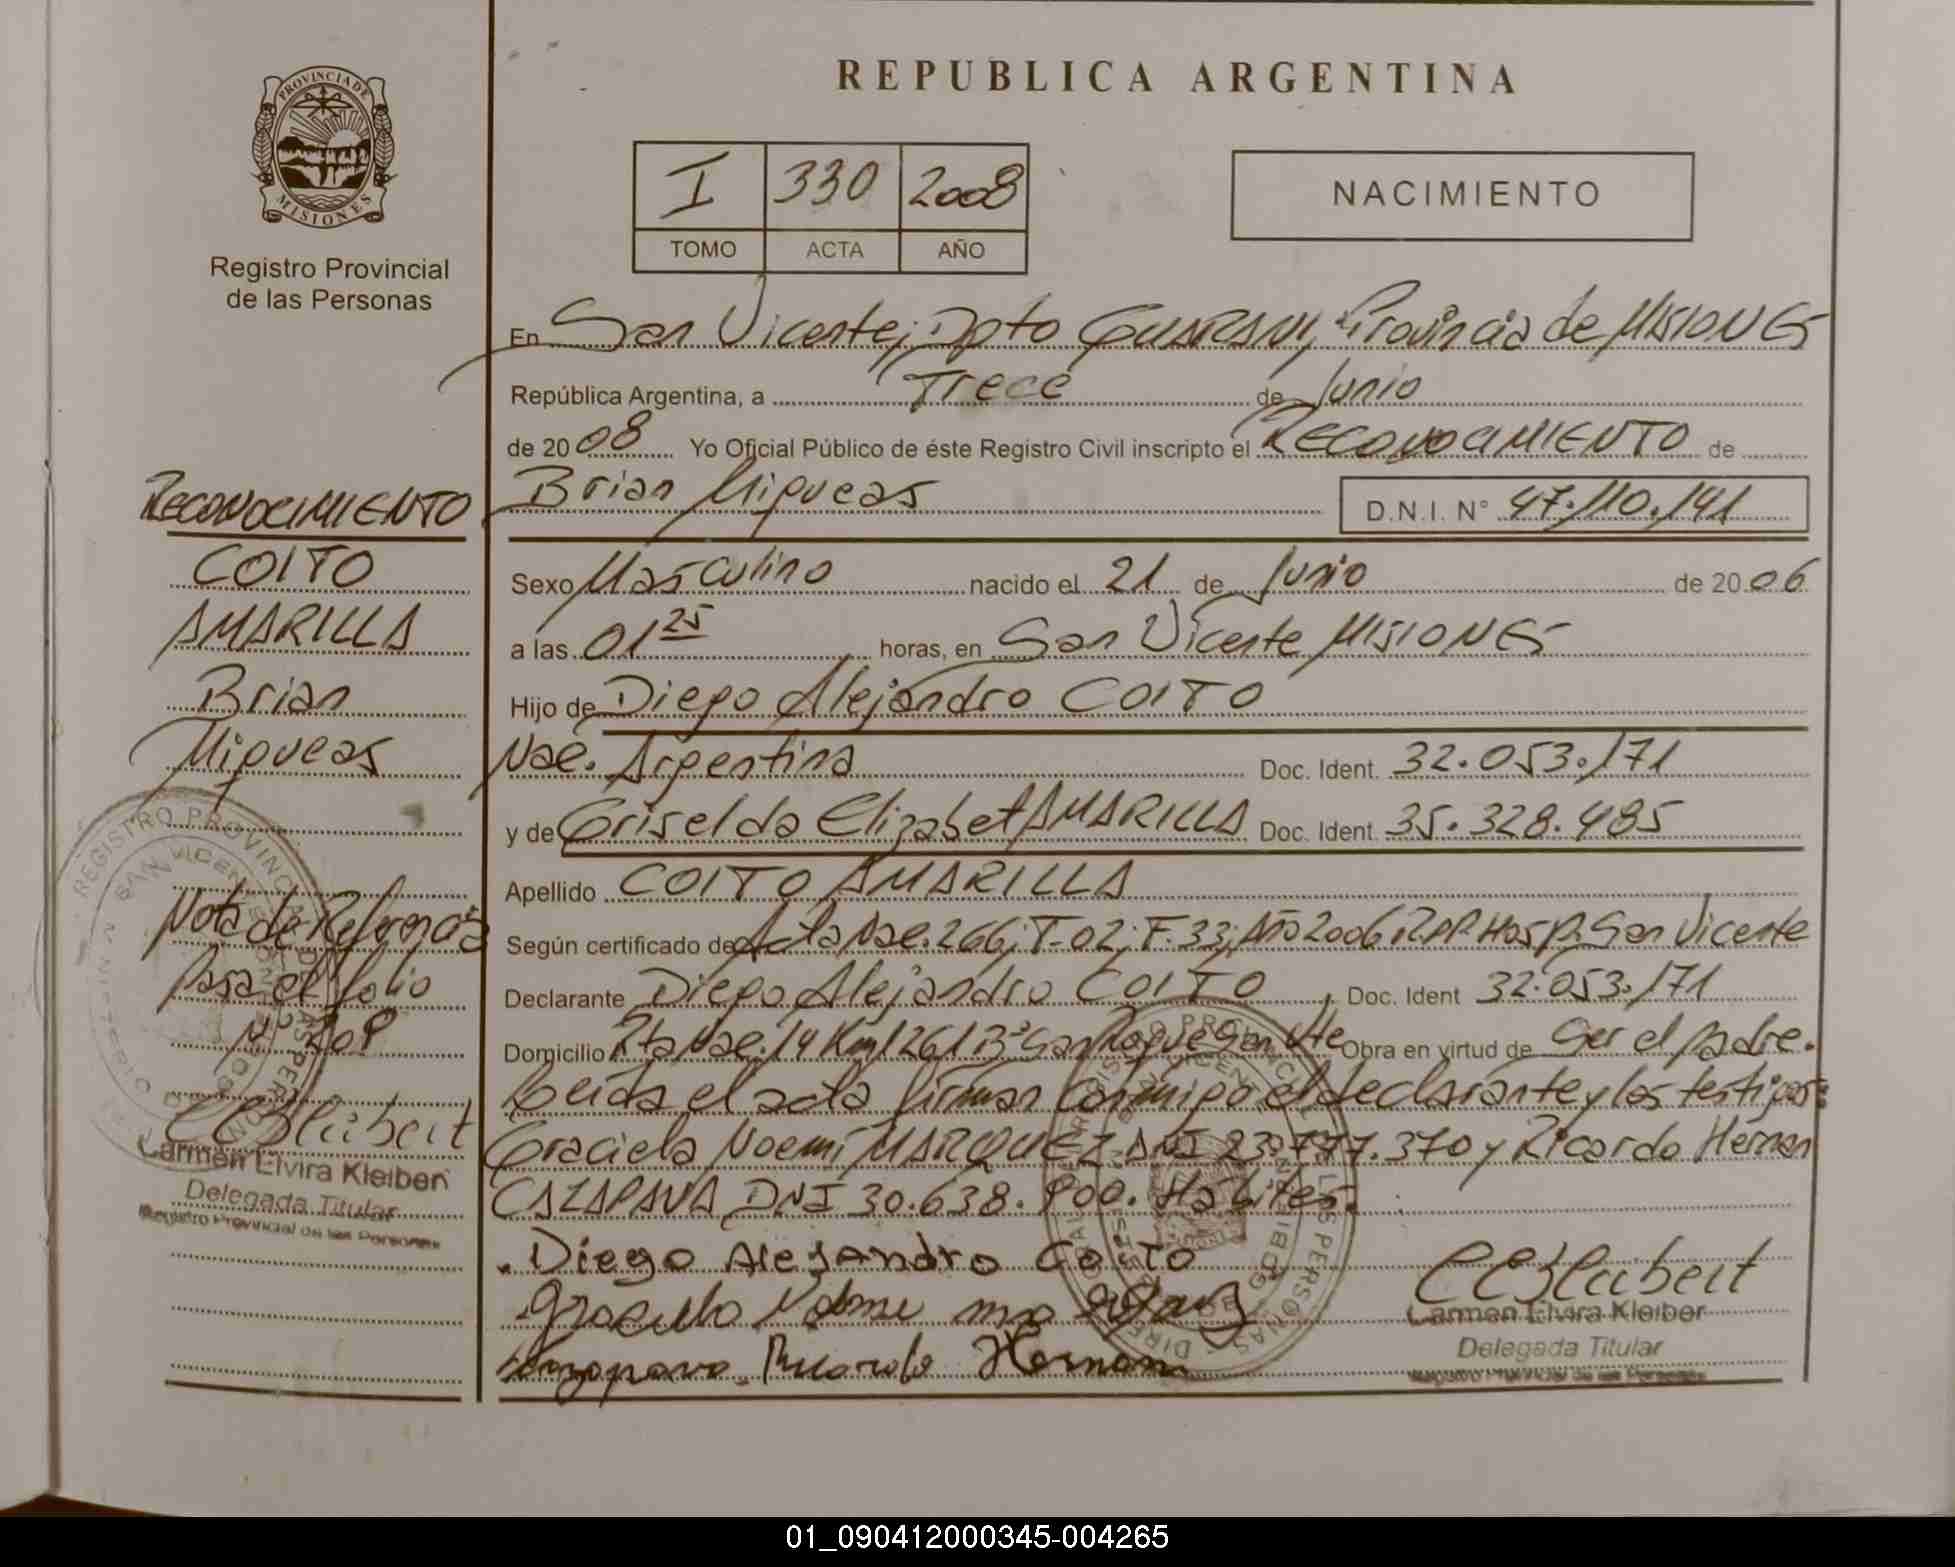 REPUBLICA ARGENTINA
PROVINCIA DE
MISIONES
Registro Provincial
de las Personas
I 330 2008
TOMO ACTA AÑO
NACIMIENTO
En San Vicente, Dpto GUARANI, Provincia de MISIONES
República Argentina, a Trece de Junio
de 2008 Yo Oficial Público de éste Registro Civil inscripto el RECONOCIMIENTO de
Brian Miqueas D.N.I. N° 47.110.141
Sexo Masculino nacido el 21 de Junio de 2006
a las 01 25 horas, en San Vicente MISIONES
Hijo de Diego Alejandro COITO
Nac. Argentina Doc. Ident. 32.053.171
y de Griselda Elizabet AMARILLA Doc. Ident. 35.328.485
Apellido COITO AMARILLA
Según certificado de Acta Nac. 266; T-02; F.33; Año 2006, RPP. Hosp. San Vicente
Declarante Diego Alejandro COITO, Doc. Ident 32.053.171
Domicilio Rta Nac. 14 Km 1261 B° San Roque San Vte Obra en virtud de Ser el padre.
Leida el acta firman conmigo el declarante y los testigos:
Graciela Noemi MARQUEZ DNI 23.777.370 y Ricardo Hernan
CAZAPAVA DNI 30.638.900. Habiles.
Diego Alejandro Coito
Ricardo Hernan
Carmen Elvira Kleiber
Delegada Titular
Registro Provincial de las Personas
RECONOCIMIENTO
COITO
AMARILLA
Brian
Miqueas
Nota de Referencia
Pasa el folio
Carmen Elvira Kleiber
Delegada Titular
Registro Provincial de las Personas
01_090412000345-004265